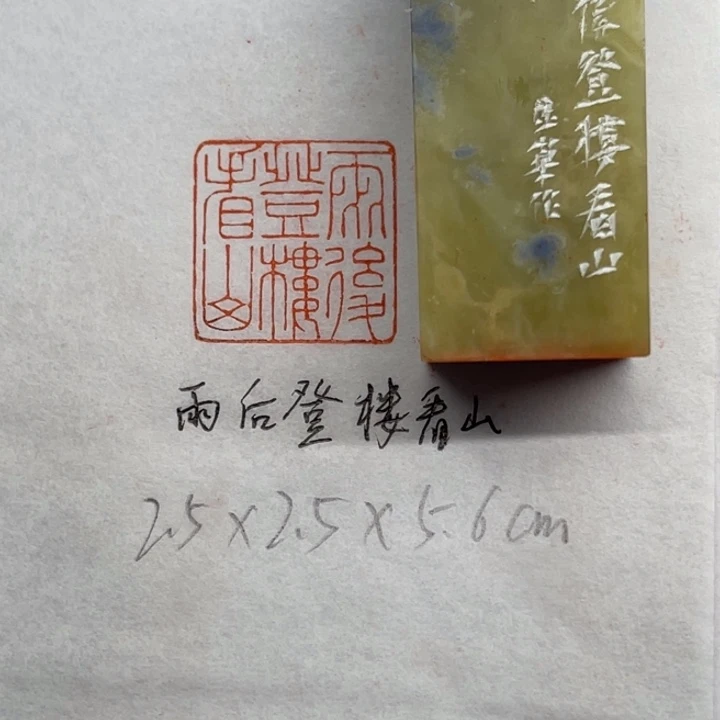 雨後
登樓
看山
登樓看山
作
雨后登楼看山
2.5×2.5×5.6cm